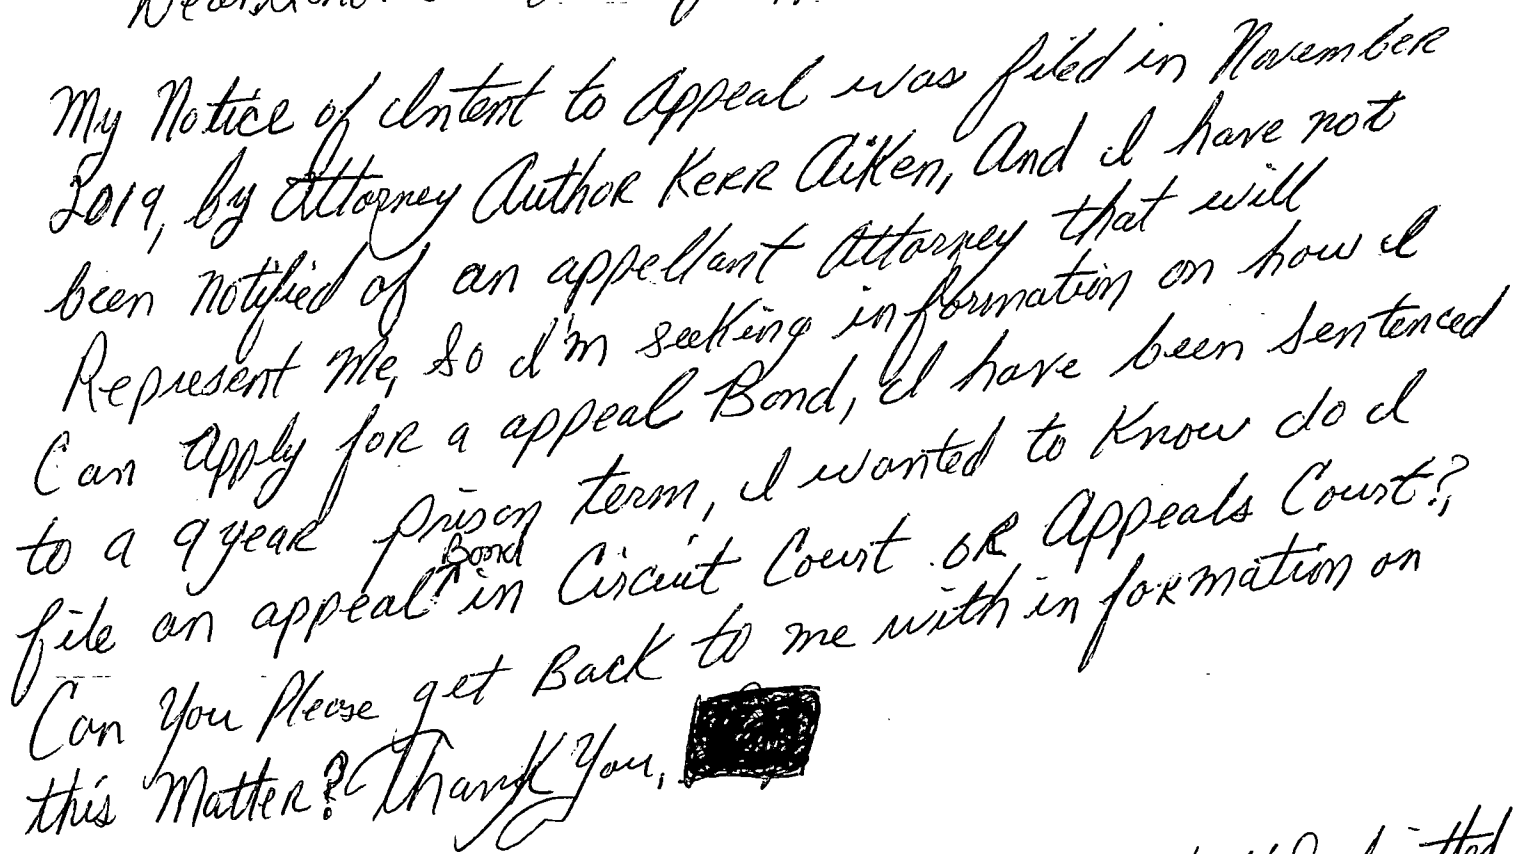 My Notice of Intent to Appeal was filed in November
2019, by Attorney Author Kerr Aiken, And I have not
been notified of an appellant Attorney that will
Represent Me, So I'm seeking information on how I
Can Apply for a appeal Bond, I have been sentenced
to a 9 year prison term, I wanted to Know do I
file an appeal Bond in Circuit Court OR Appeals Court?,
Can You Please get Back to me with information on
this Matter? Thank You,